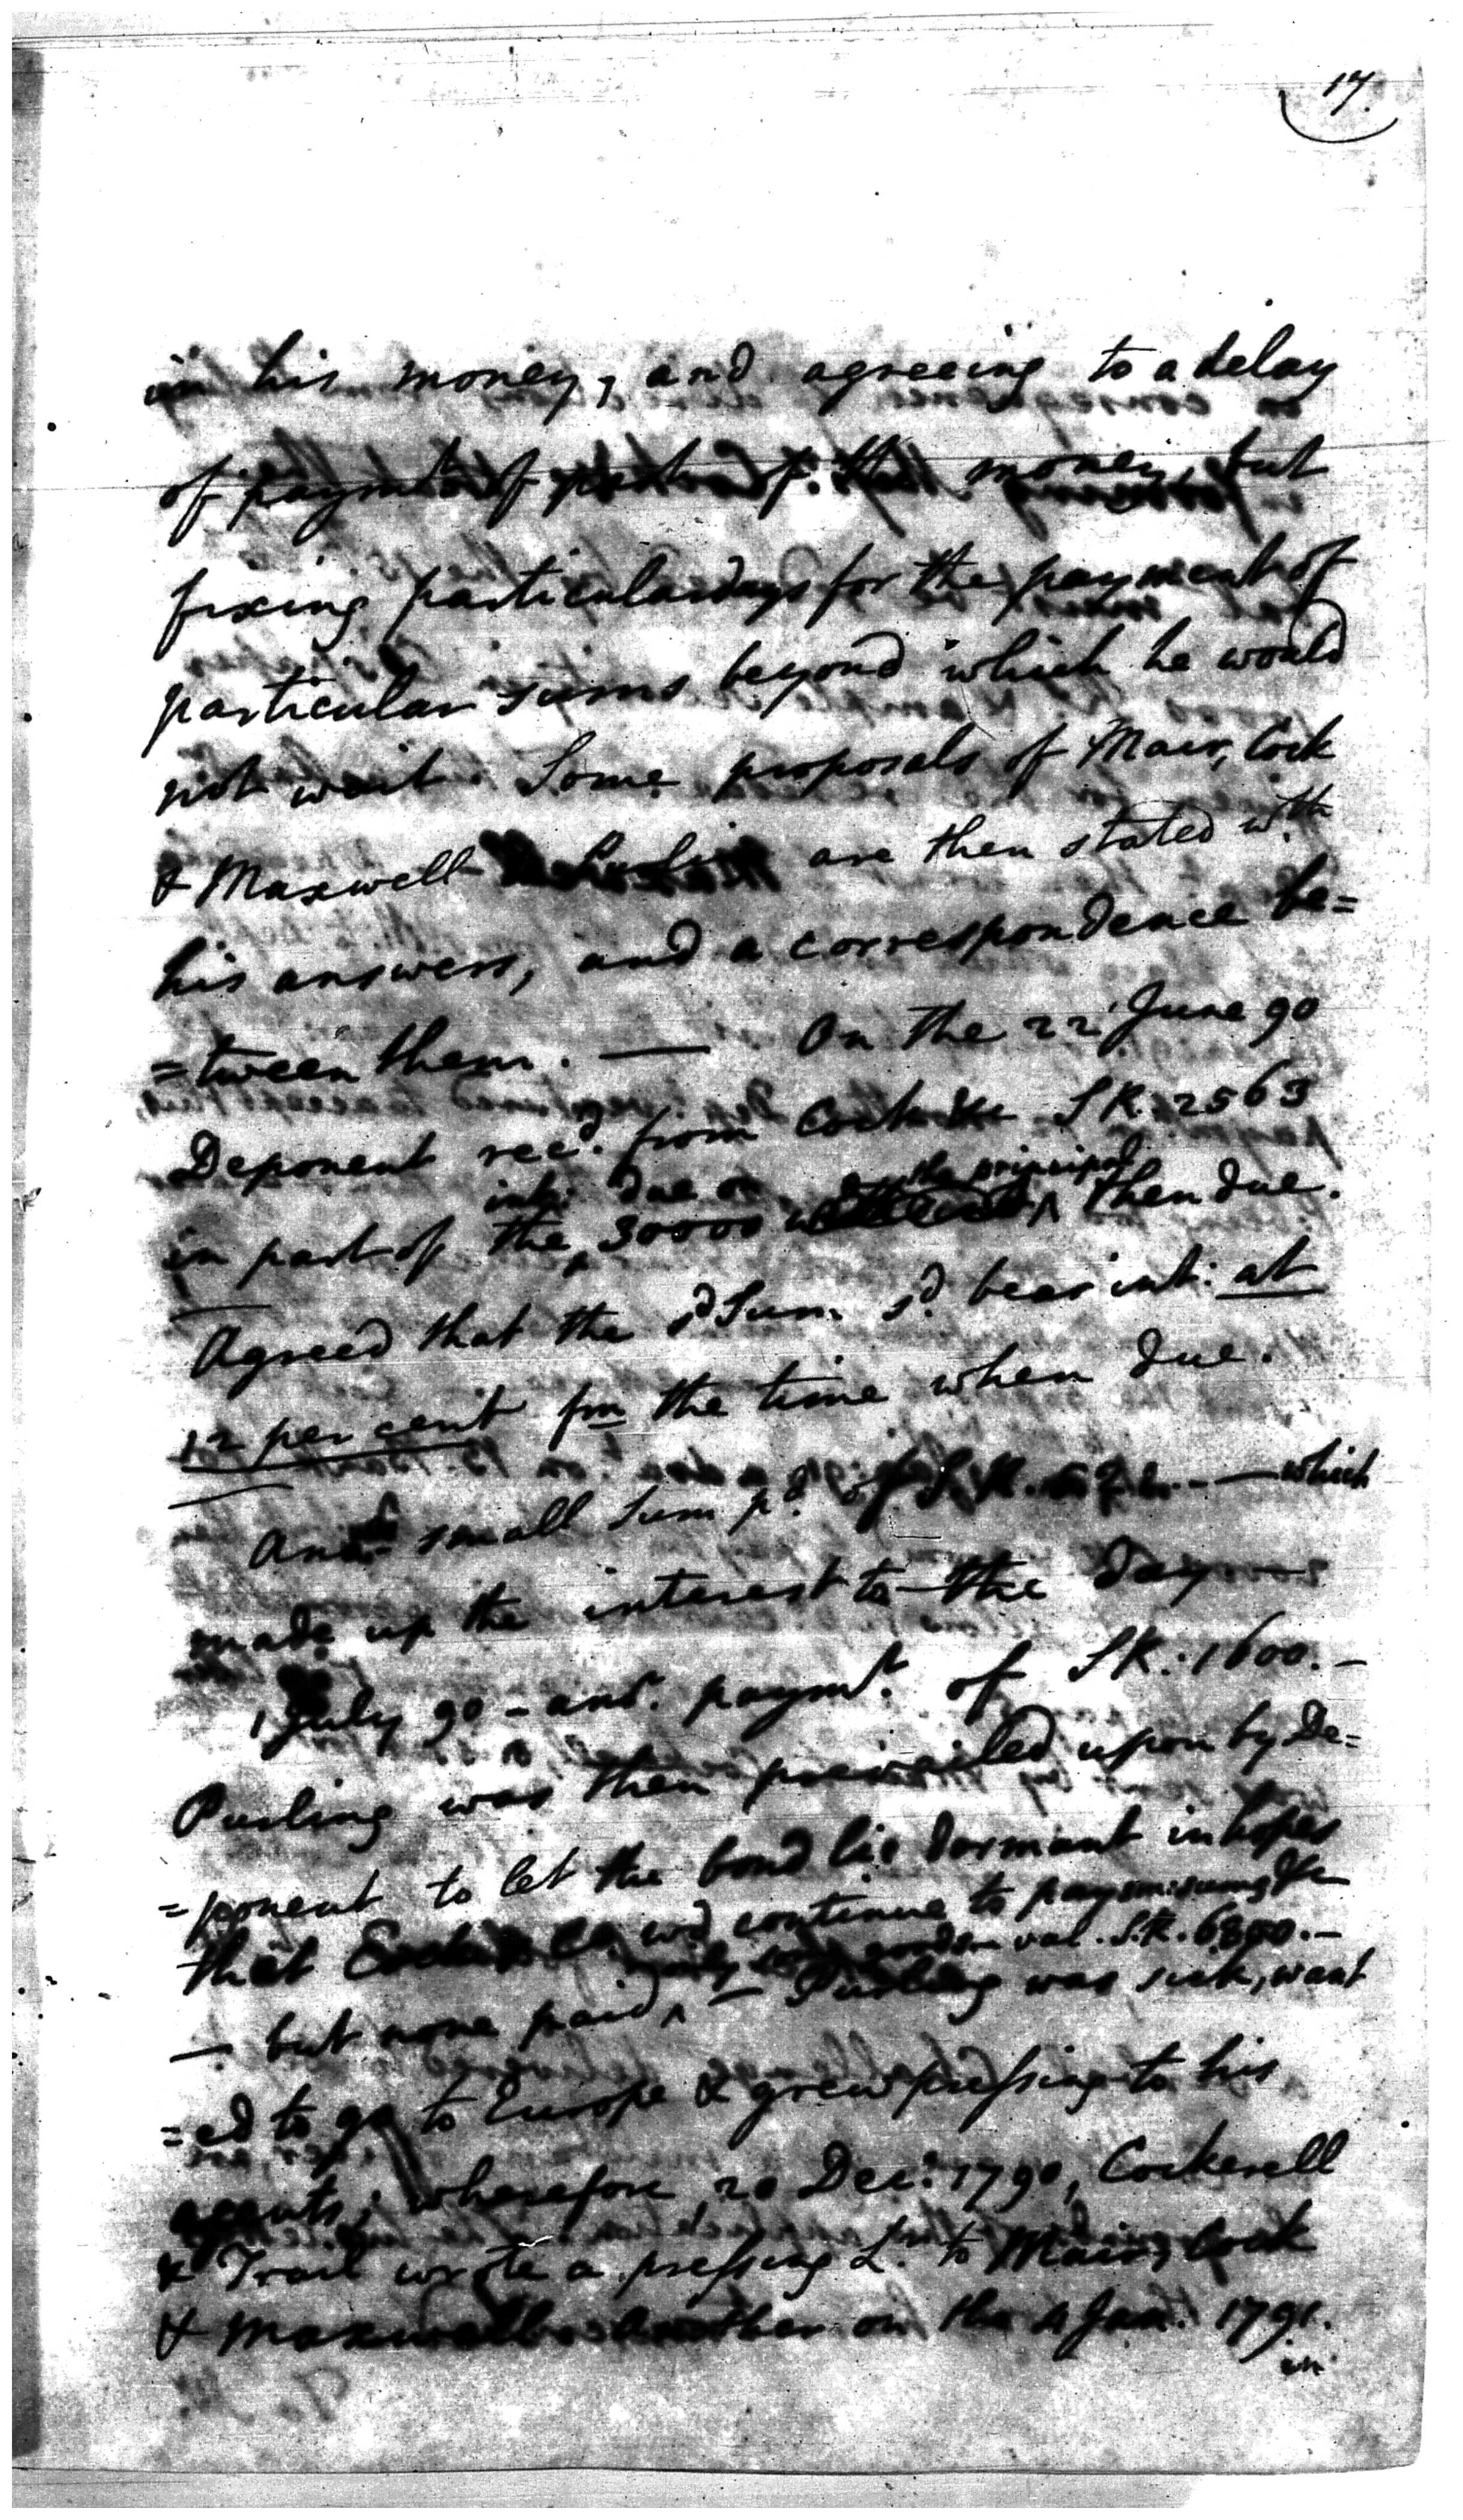 17.
in his money, and agreeing to a delay
of paymt. of part of the money, but
fixing particular days for the payment of
particular sums beyond which he would
not wait. Some proposals of Mair, Cock
& Maxwell are then stated wth
his answers, and a correspondence be=
=tween them. — On the 22 June 90
Deponent recd. from Cock &c S R. 2563
int: due on the principal
in part of the 30000 then due.
Agreed that the sd Sum sd. bear int: at
12 per cent fm the time when due.
Anr. small sum pd. of S. R. — which
made up the interest to the day —
1 July 90 – anr. paymt. of S R. 1600. –
Purling was then prevailed upon by De=
=ponent to let the bond lie dormant in hopes
that Cock & Co. wd continue to pay sm: sums &c
only some goods val. S.R. 6800. –
— but none paid — Purling was sick, want
=ed to go to Europe & grew pressing to his
agents; wherefore 20 Dec: 1790, Cockerell
& Trail wrote a pressing Lr. to Mair, Cock
& Maxwell. Another on the 4 Jan. 1791.
in